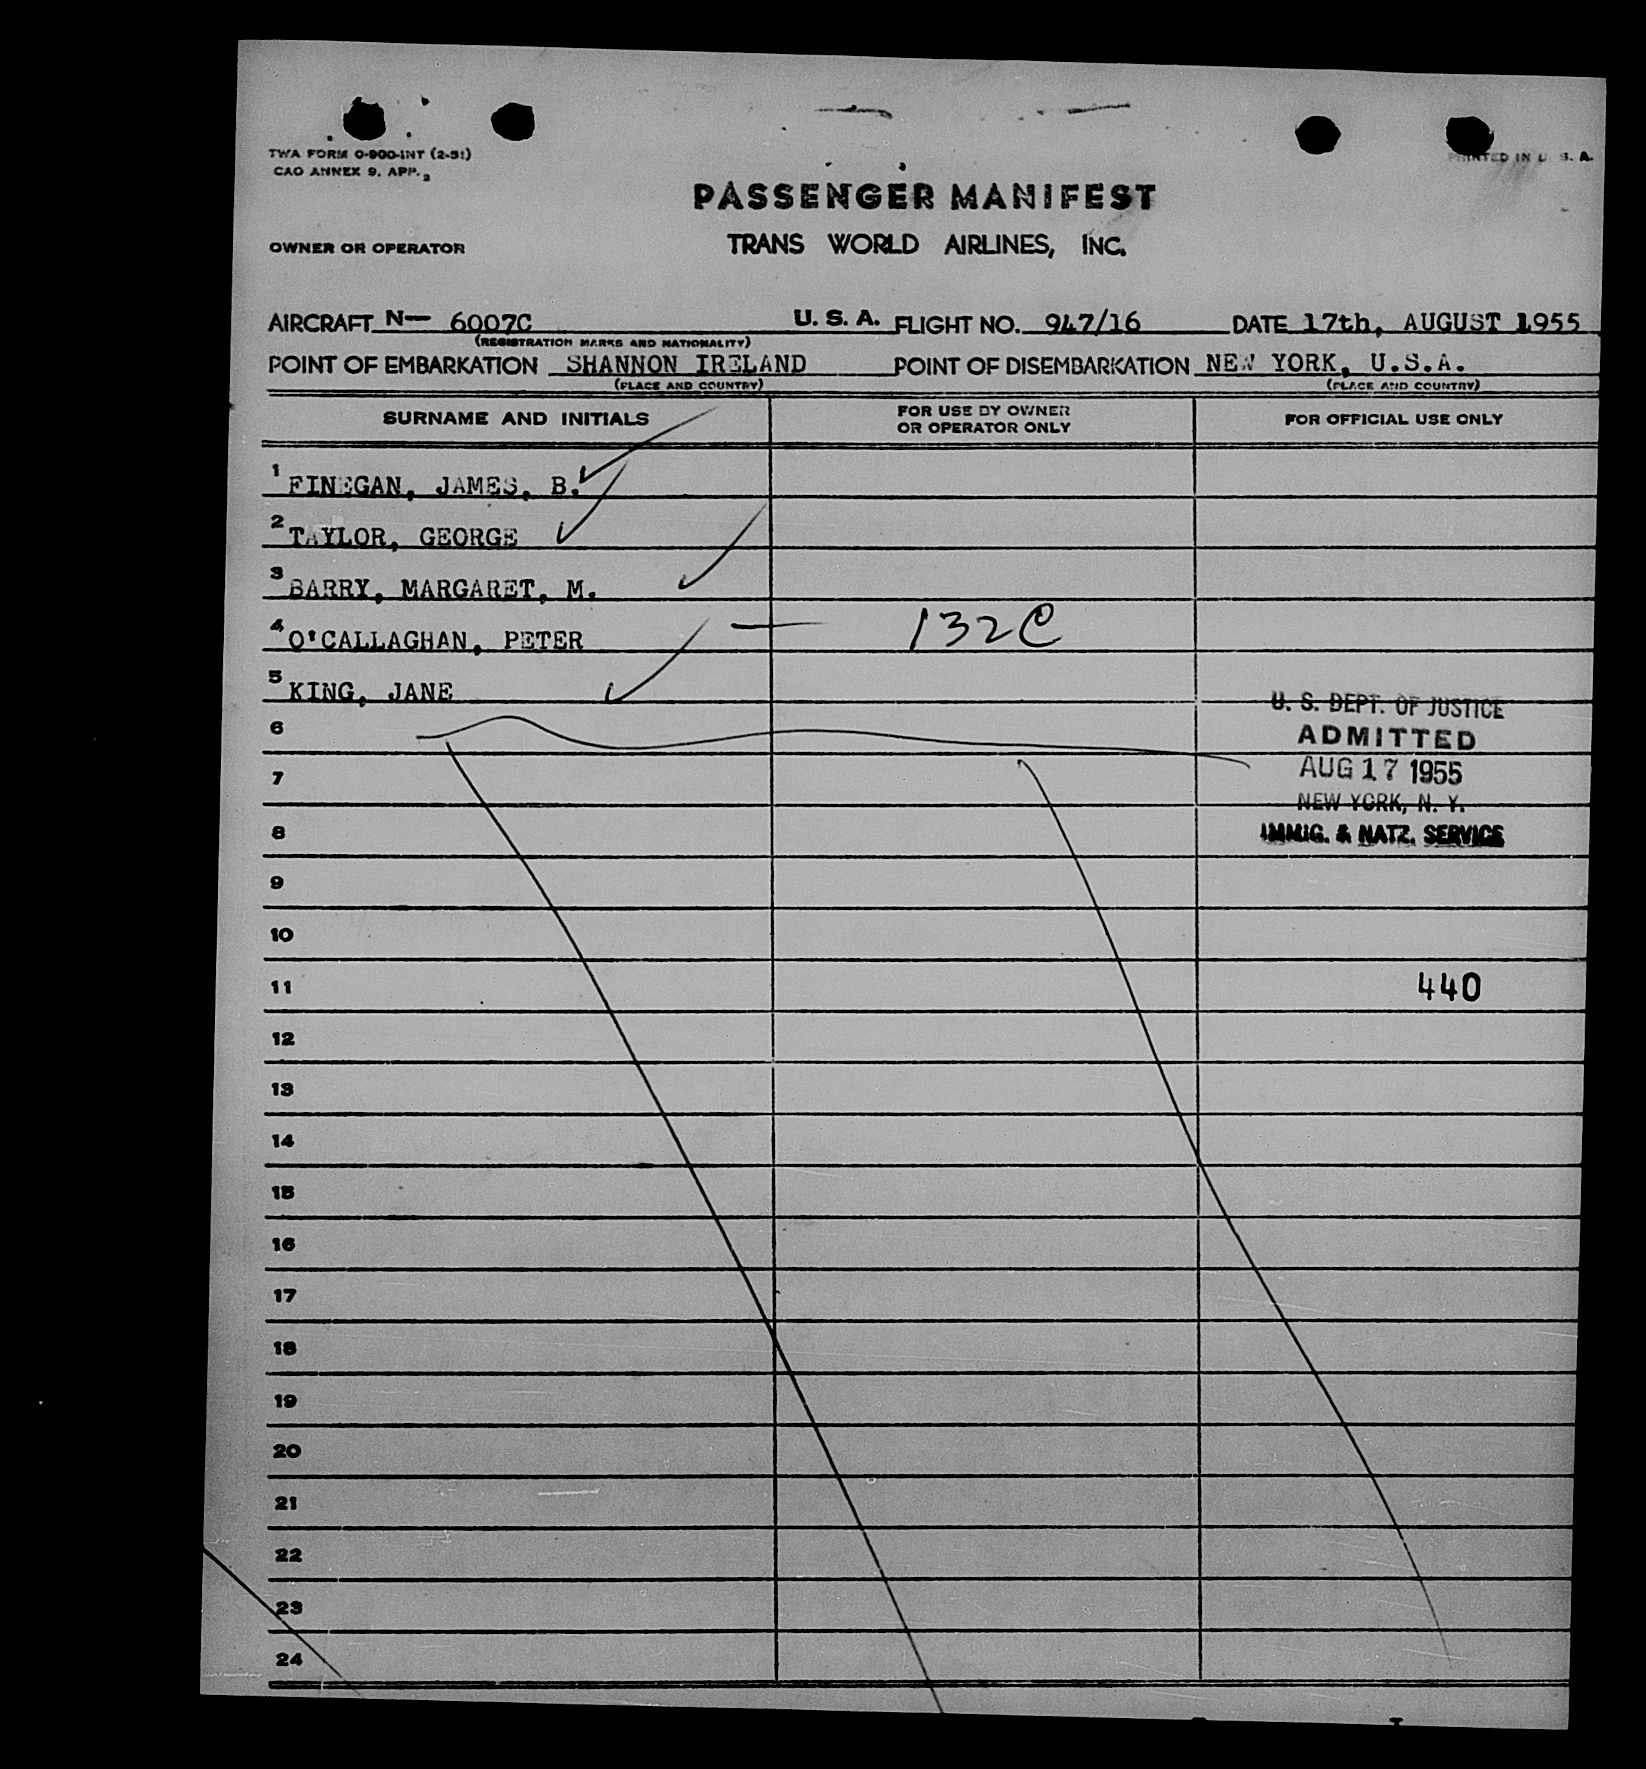 TWA FORM O-900-INT (2-51)
CAO ANNEX 9, APP. 2
PRINTED IN U. S. A.
PASSENGER MANIFEST
OWNER OR OPERATOR
TRANS WORLD AIRLINES, INC.
AIRCRAFT N— 6007C U. S. A. FLIGHT NO. 947/16 DATE 17th, AUGUST 1955
(REGISTRATION MARKS AND NATIONALITY)
POINT OF EMBARKATION SHANNON IRELAND POINT OF DISEMBARKATION NEW YORK, U.S.A.
(PLACE AND COUNTRY) (PLACE AND COUNTRY)
SURNAME AND INITIALS FOR USE BY OWNER OR OPERATOR ONLY FOR OFFICIAL USE ONLY
1 FINEGAN, JAMES, B.
2 TAYLOR, GEORGE
3 BARRY, MARGARET, M.
4 O'CALLAGHAN, PETER — 132C
5 KING, JANE
U. S. DEPT. OF JUSTICE
6 ADMITTED
7 AUG 17 1955
NEW YORK, N. Y.
8 IMMIG. & NATZ. SERVICE
9
10
11 440
12
13
14
15
16
17
18
19
20
21
22
23
24